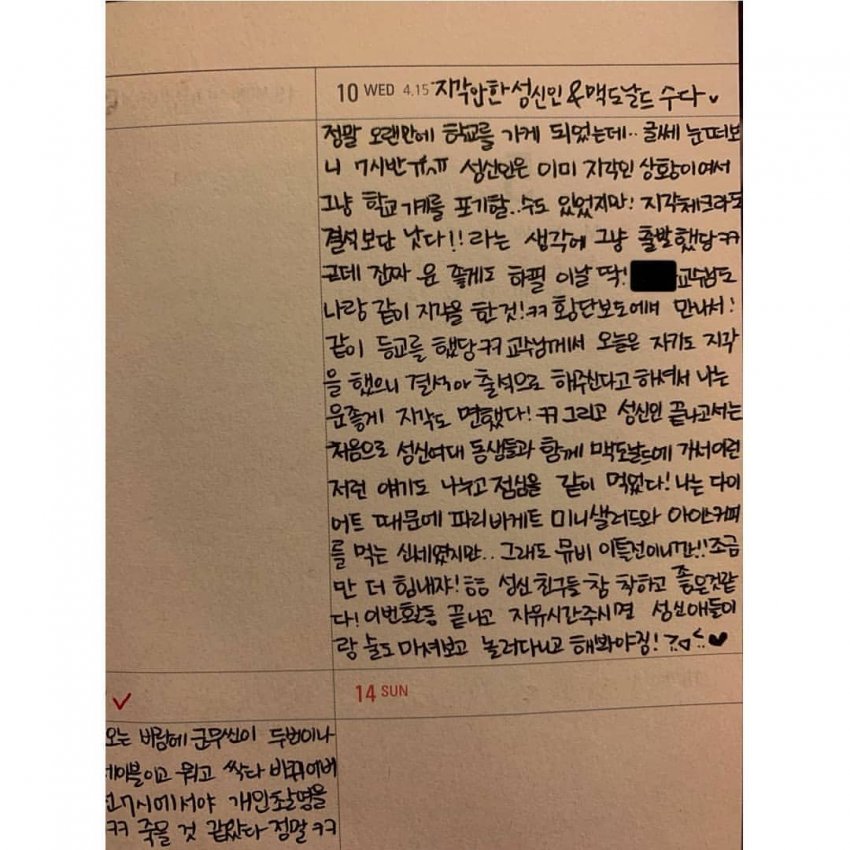 10 WED 4.15 지각안한 성신인 & 맥도날드 수다
정말 오랜만에 학교를 가게 되었는데.. 글쎄 눈떠보
니 7시반ㅠㅠ 성신인은 이미 지각인 상황이여서
그냥 학교 가기를 포기할..수도 있었지만! 지각체크라도
결석보단 낫다!! 라는 생각에 그냥 출발했당ㅋㅋ
근데 진짜 운 좋게도 하필 이날 딱! 교수님도
나랑 같이 지각을 한것!ㅋㅋ 횡단보도에서 만나서!
같이 등교를 했당ㅋㅋ 교수님께서 오늘은 자기도 지각
을 했으니 결석아 출석으로 해주신다고 하셔서 나는
운좋게 지각도 면했다!ㅋㅋ 그리고 성신인 끝나고서는
처음으로 성신여대 동생들과 함께 맥도날드에 가서 이런
저런 얘기도 나누고 점심을 같이 먹었다! 나는 다이
어트 때문에 파리바게트 미니샐러드와 아이스커피
를 먹는 신세였지만.. 그래도 뮤비 이틀전이니깐!! 조금
만 더 힘내자! ㅎㅎ 성신 친구들 참 착하고 좋은것같
다! 이번활동 끝나고 자유시간주시면 성신애들이
랑 술도 마셔보고 놀러다니고 해봐야짐!
14 SUN
오는 바람에 군무씬이 두번이나
테이블이고 뭐고 싹다 바뀌어버
7시에서야 개인촬영을
ㅋㅋ 죽을 것 같았다 정말ㅋㅋ